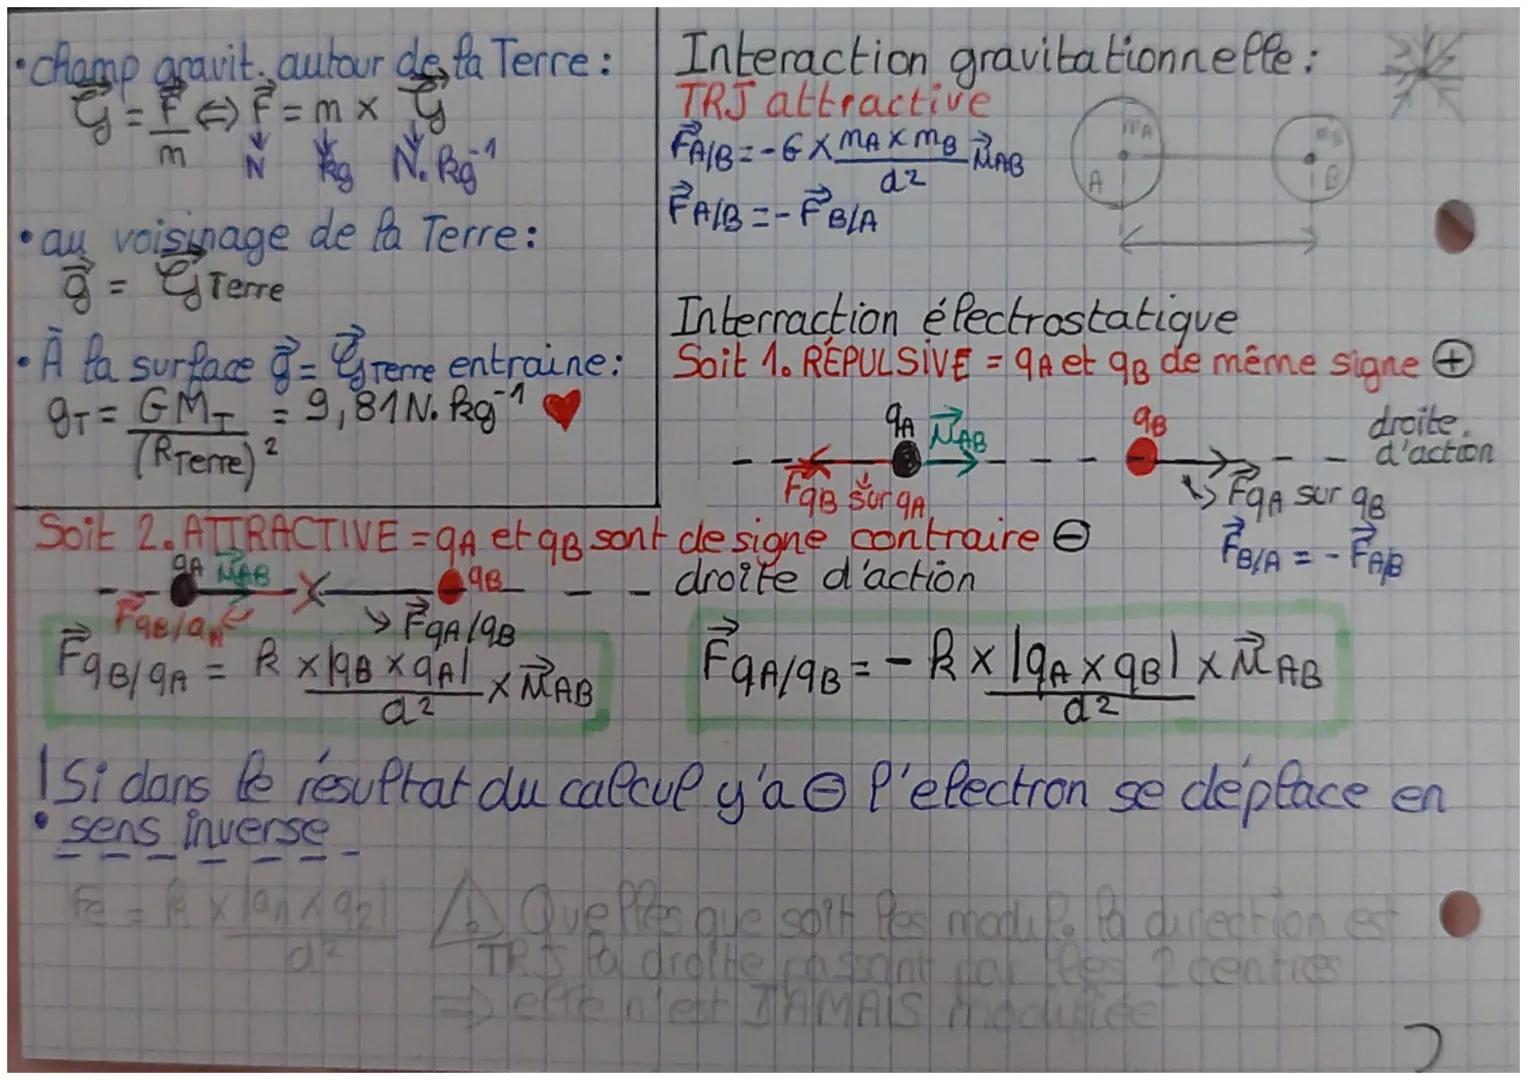 • champ gravit. autour de la Terre :
𝒢⃗ = F⃗/m ⇔ F⃗ = m × 𝒢⃗
N kg N.kg⁻¹
• au voisinage de la Terre :
g⃗ = 𝒢⃗ Terre
• À la surface g⃗ = 𝒢⃗ Terre entraine :
gT = GMT/(RTerre)² = 9,81 N.kg⁻¹ ♥
Interaction gravitationnelle :
TRJ attractive
F⃗A/B = - G × mA × mB/d² u⃗AB
F⃗A/B = - F⃗B/A
mA
A
B
Interraction électrostatique
Soit 1. RÉPULSIVE = qA et qB de même signe ⊕
qA u⃗AB qB droite
d'action
F⃗qB sur qA
↳ F⃗qA sur qB
F⃗B/A = - F⃗A/B
Soit 2. ATTRACTIVE = qA et qB sont de signe contraire ⊖
qA u⃗AB qB droite d'action
F⃗qB/qA
↳ F⃗qA/qB
F⃗qB/qA = k × |qB × qA|/d² × u⃗AB
F⃗qA/qB = - k × |qA × qB|/d² × u⃗AB
! Si dans le résultat du calcul y'a ⊖ l'electron se déplace en
sens inverse
Fe = k × |q1 × q2|/d²
⚠ Quelles que soit les modif. la direction est
TRJ la droite passant par les 2 centres
⇒ elle n'est JAMAIS modifiée